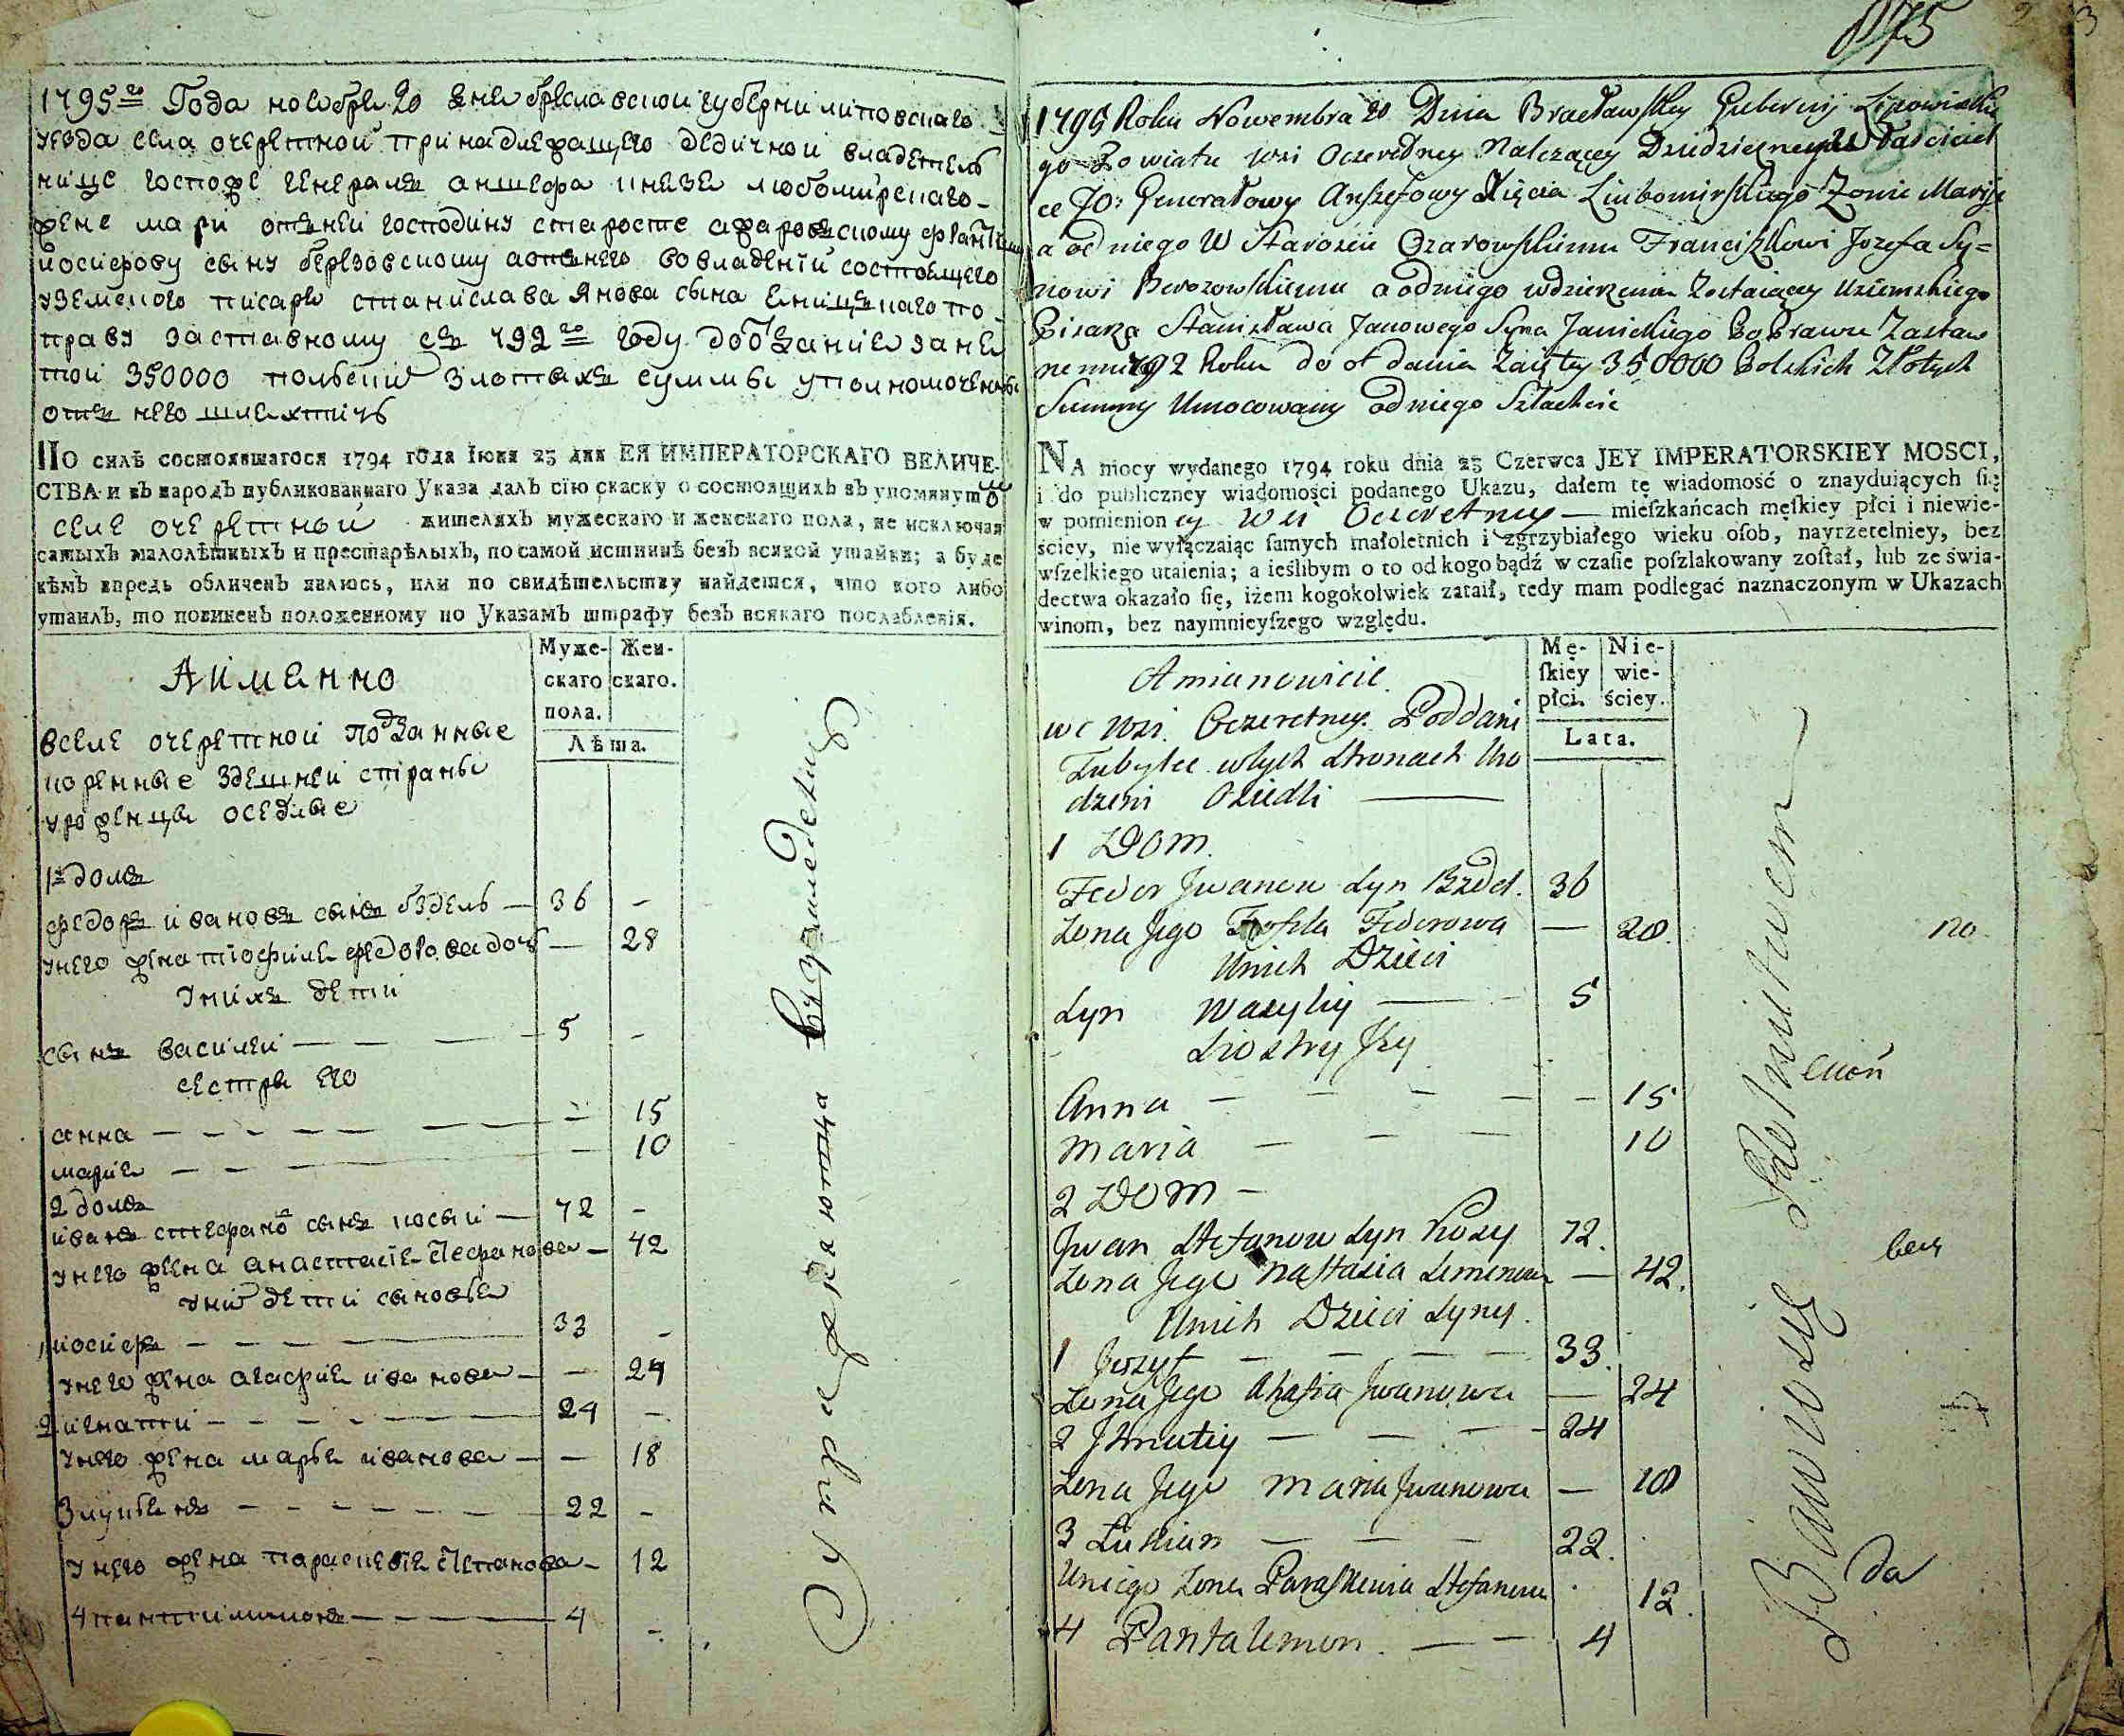 1795го Года ноября 20 дня браславской губерни липовецкаго
уезда села очеретной принадлежащего дедичной владетель
нице госпоже генерал аншефа князя любомирскаго
жене мари от ней господину старосте ажаровскому францишку
иосифову сыну березовскому а от него во владении состоящего
уземского писаря станислава янова сына
праву заставному 1792го году до отдания заня
той 350000 польских злотых суммы уполномоченный
от него шляхтичь
По силѣ состоявшагося 1794 года Іюня 23 дня ЕЯ ИМПЕРАТОРСКАГО ВЕЛИЧЕ-
СТВА и въ народъ публикованнаго Указа далъ сію скаску о состоящихъ въ упомянутой
селе очеретной жителяхъ мужескаго и женскаго пола, не исключая
самыхъ малолѣтныхъ и престарѣлыхъ, по самой истиннѣ безъ всякой утайки; а буде
кѣмъ впредь обличенъ явлюсь, или по свидѣтельству найдется, что кого либо
утаилъ, то повиненъ положенному по Указамъ штрафу безъ всякаго послабленія.
Муже-
скаго
пола.
Жен-
скаго.
Лѣта.
А имянно
в селе очеретной подданные
коренные здешней страны
уроженцы оседлые
1й домъ
федоръ ивановъ сынъ бздель — 36 -
у него жена тиофиля федорова дочь — 28
у нихъ дети
сынъ василей — 5 -
сестры его
анна — 15
мария — 10
2 домъ
иванъ стефано въ сынъ косый — 72 -
у него жена анастасия — 42
у них дети сыновья
1 иосифъ — 33 -
у него жена агафия иванова — 24
2 игнатий — 24 -
у него жена марья иванова — 18
3 лукьянъ — 22 -
у него жена параскевия степанова — 12
4 пантилимонъ — 4 -
Утверждаютца в уездимедетиц
1795 Roku Nowembra 20 Dnia Bracławskey Gubernij Lipowieckie
go Powiatu wsi Oczeretney Należącey Dziedziczney Właściciel
ce JO: Generałowy Anszefowy Xięcia Lubomirskiego Zonie Maryi
a od niego W Staroscie Ozarowskiemu Franciszkowi Jozefa Sy=
nowi Berozowskiemu a od niego w dzierzeniu Zostaiącey Uziemskiego
Pisarza Stanisława Janowego Syna Janickiego Po Prawu Zastaw
nemu 1792 Roku do oddania Zaiętey 350000 Polskich Złotych
Summy Umocowany od niego Szlachcic
NA mocy wydanego 1794 roku dnia 23 Czerwca JEY IMPERATORSKIEY MOSCI,
i do publiczney wiadomości podanego Ukazu, dałem tę wiadomość o znayduiących się
w pomienioney Wsi Oczeretney — mieſzkańcach męſkiey płci i niewie-
ściey, nie wyłączaiąc ſamych małoletnich i zgrzybiałego wieku oſob, nayrzetelniey, bez
wſzelkiego utaienia; a ieślibym o to od kogo bądź w czaſie poſzlakowany zoſtał, lub ze świa-
dectwa okazało ſię, iżem kogokolwiek zataił, tedy mam podlegać naznaczonym w Ukazach
winom, bez naymnieyſzego względu.
Mę-
ſkiey
płci.
Nie-
wie-
ściey.
Lata.
A mianowicie
we wsi Oczeretney Poddani
Tubylce w tych Stronach Uro
dzeni Osiedli —
1 Dom
Fedor Jwanow Syn Bzdel. 36
Zona Jego Tiofila Fedorowa — 28.
U nich Dzieci
Syn Wasyliy — 5
Siostry Jey
Anna — 15
Maria — 10
2 Dom —
Jwan Stefanow Syn Kosy 72.
Zona Jego Nastazia Semenowa — 42.
U nich Dzieci Syny.
1 Jozyf — 33.
Zona Jego Ahafia Jwanowa — 24
2 Jhnatiy — 24
Zona Jego Maria Jwanowa — 18
3 Lukian — 22.
U niego Zona Paraskewia Stefanowa 12.
4 Pantalemon — 4
no
bez
da